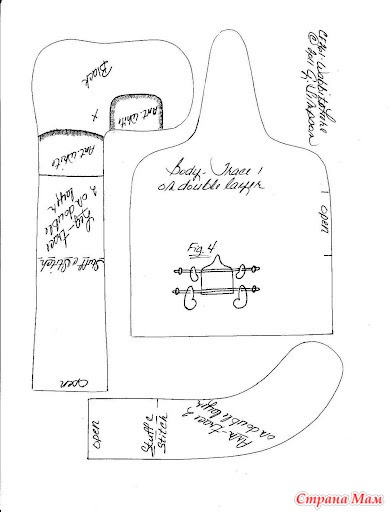 Black
x
Ant. White
Ant. White
Leg-trace
2 on double
layer
Stuff & Stitch
open
Body-Trace 1
on double layer
open
Fig. 4
open
Stuff &
Stitch
Arm-trace 2
on double layer
Страна Мам